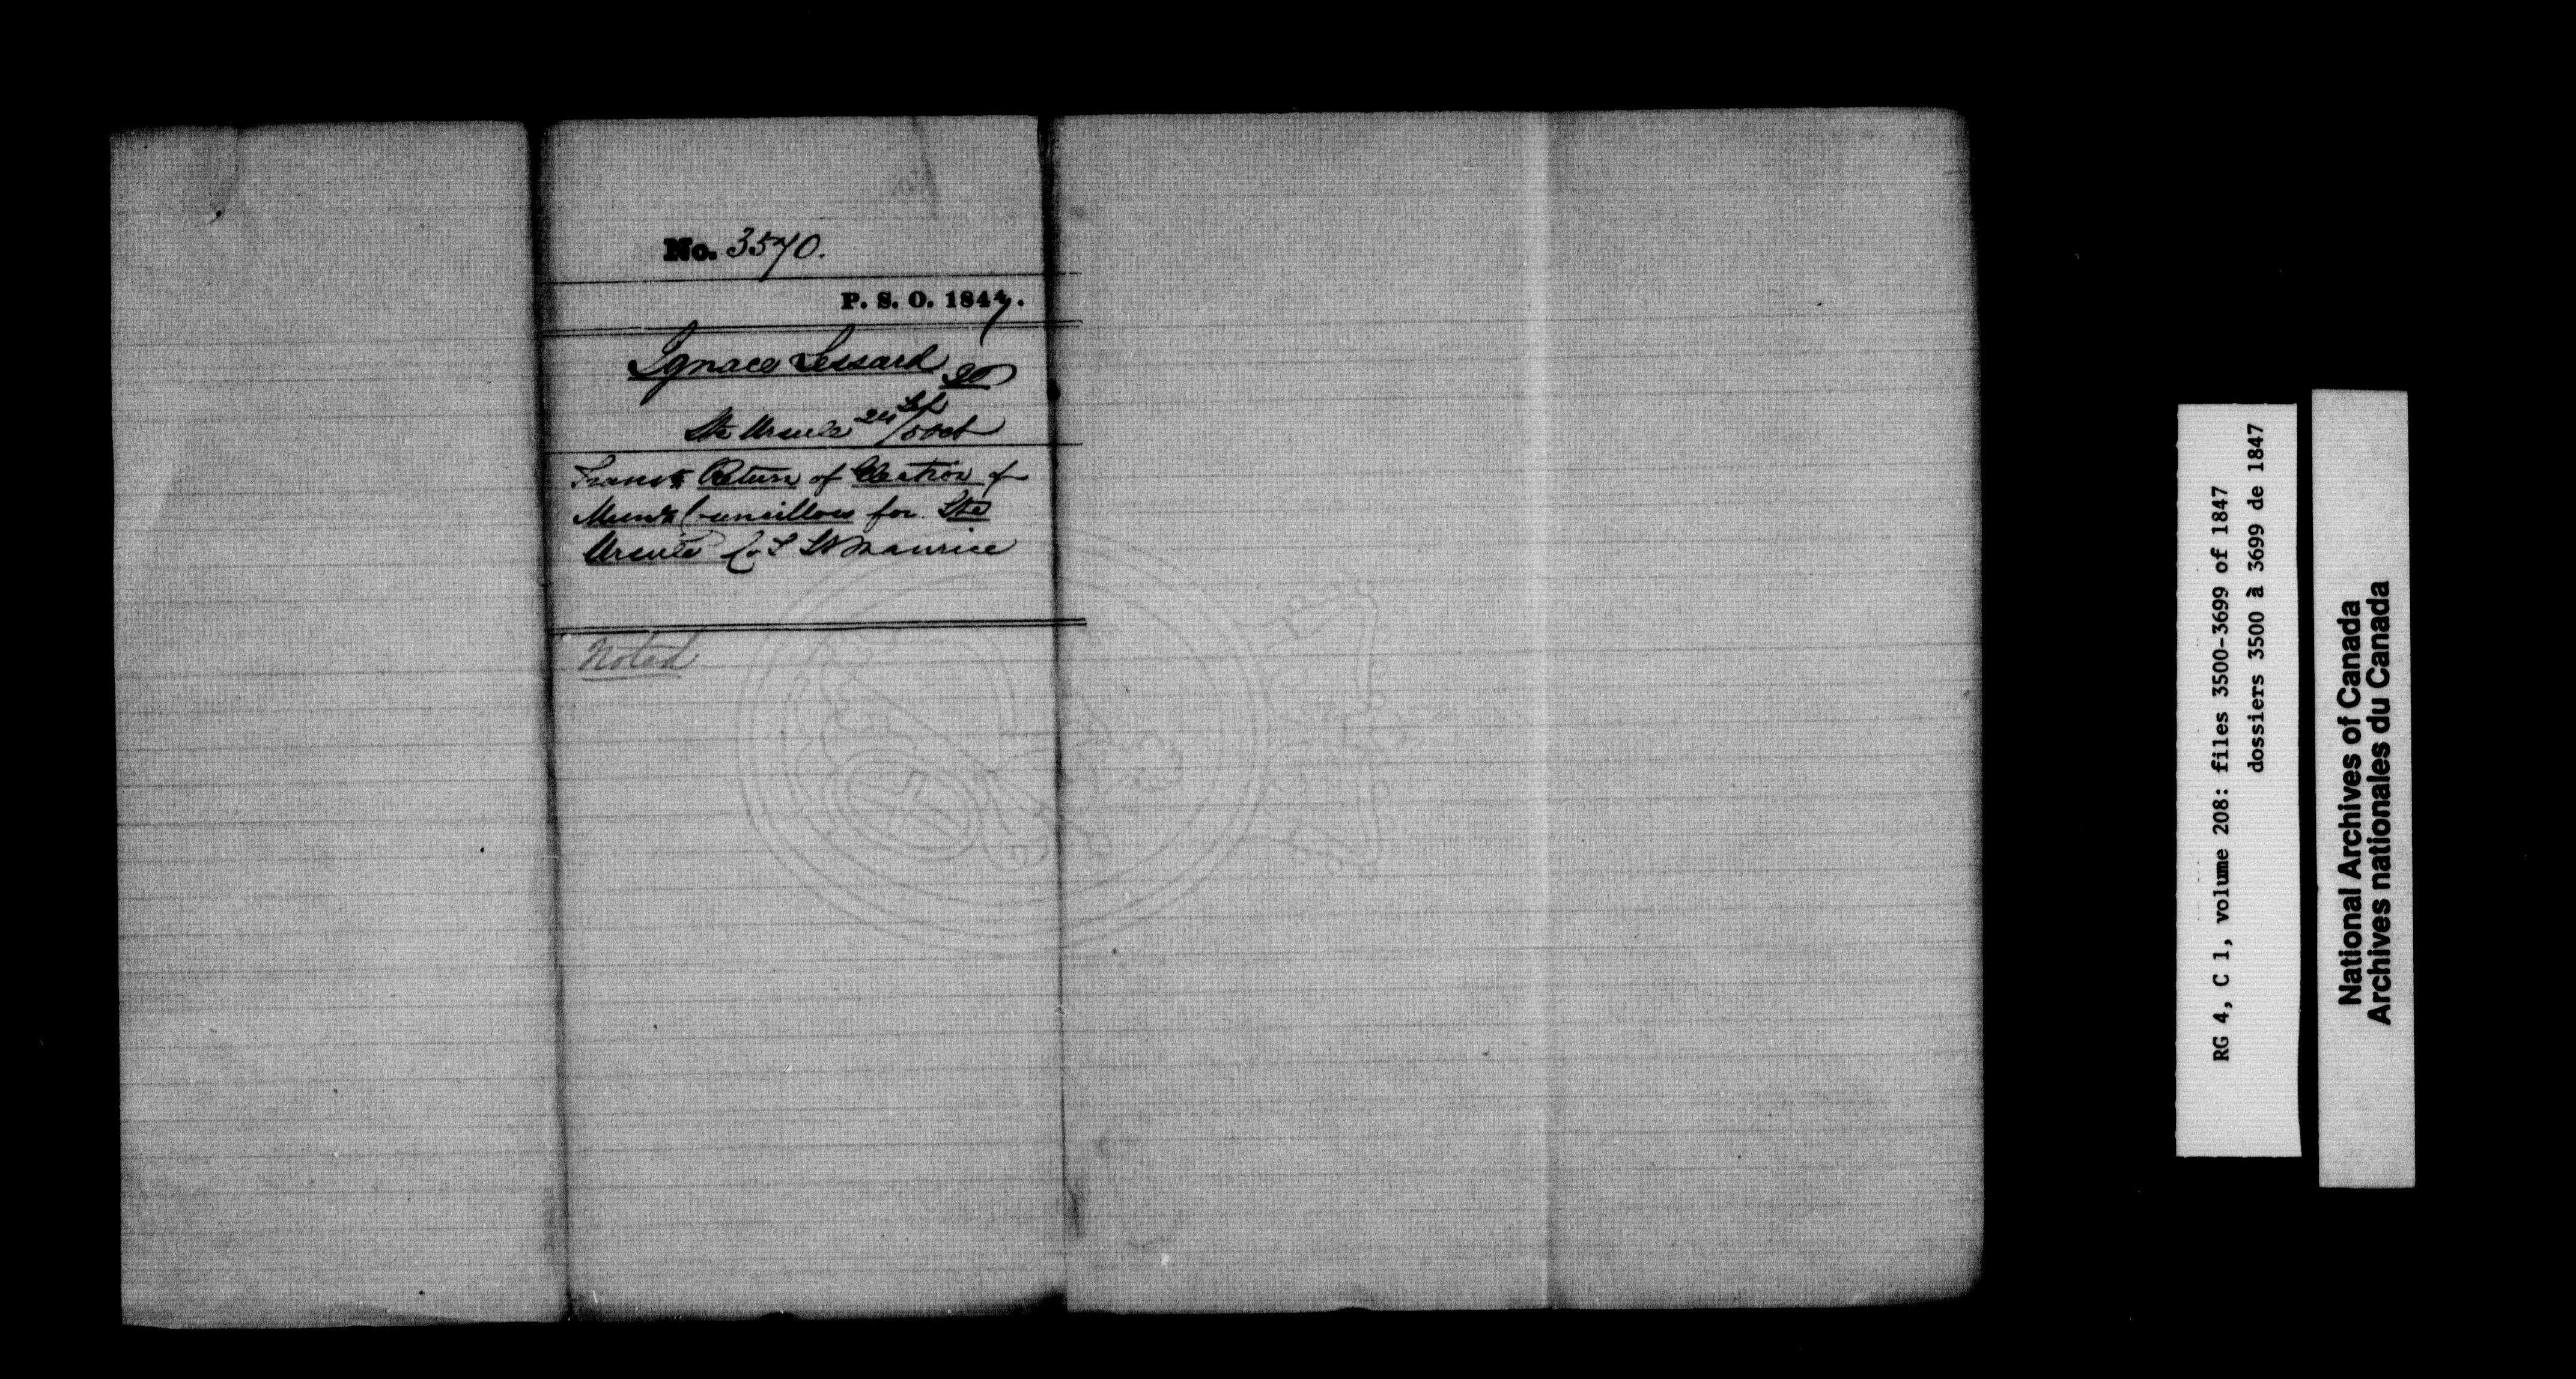 No. 3570.
P. S. O. 1847.
Ignace Lessard
Ste Ursule 24 Sep / 5 Oct
Return of Election of
Councillors for Ste
Ursule Co St Maurice
Noted
RG 4, C 1, volume 208: files 3500-3699 of 1847
dossiers 3500 à 3699 de 1847
National Archives of Canada
Archives nationales du Canada